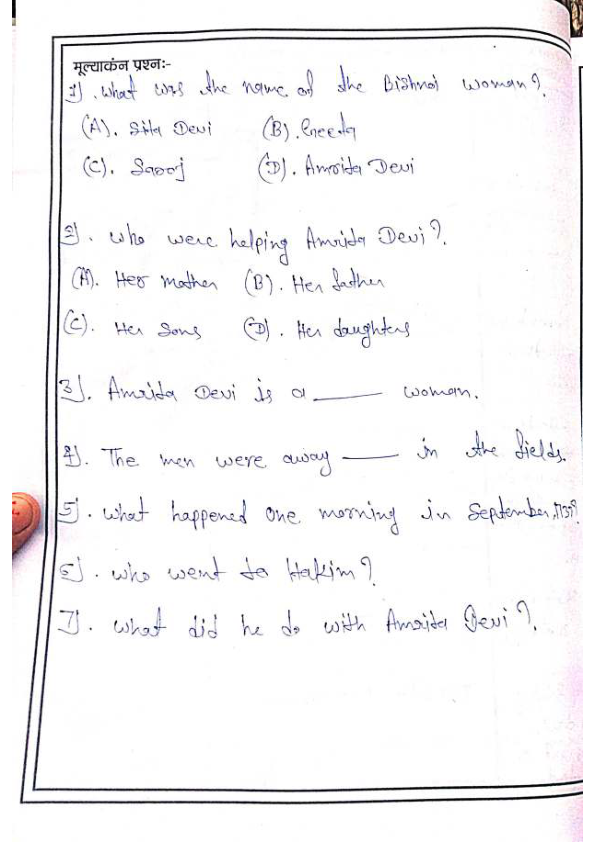 मूल्याकंन प्रश्नः-
1). What was the name of the Bishnoi woman?
(A). Sita Devi (B). Geeta
(C). Saroj (D). Amrita Devi
2). Who were helping Amrita Devi?
(A). Her mother (B). Her father
(C). Her Sons (D). Her daughters
3). Amrita Devi is a ____ woman.
4). The men were away ____ in the fields.
5). What happened one morning in September, 1730?
6). Who went to Hakim?
7). What did he do with Amrita Devi?